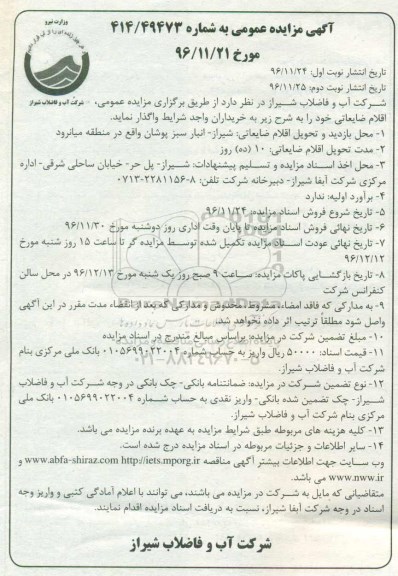 وزارت نیرو
شرکت آب و فاضلاب شیراز
آگهی مزایده عمومی به شماره ۴۱۴/۴۹۴۷۳
مورخ ۹۶/۱۱/۲۱
تاریخ انتشار نوبت اول: ۹۶/۱۱/۲۴
تاریخ انتشار نوبت دوم: ۹۶/۱۱/۲۵
شرکت آب و فاضلاب شیراز در نظر دارد از طریق برگزاری مزایده عمومی،
اقلام ضایعاتی خود را به شرح زیر به خریداران واجد شرایط واگذار نماید.
۱- محل بازدید و تحویل اقلام ضایعاتی: شیراز- انبار سبز پوشان واقع در منطقه میانرود
۲- مدت تحویل اقلام ضایعاتی: ۱۰ (ده) روز
۳- محل اخذ اسناد مزایده و تسلیم پیشنهادات: شیراز- پل حر- خیابان ساحلی شرقی- اداره
مرکزی شرکت آبفا شیراز- دبیرخانه شرکت تلفن: ۸-۲۲۸۱۱۵۶-۰۷۱۳
۴- برآورد اولیه: ندارد
۵- تاریخ شروع فروش اسناد مزایده: ۹۶/۱۱/۲۴
۶- تاریخ نهائی فروش اسناد مزایده: تا پایان وقت اداری روز دوشنبه مورخ ۹۶/۱۱/۳۰
۷- تاریخ نهائی عودت اسناد مزایده تکمیل شده توسط مزایده گر تا ساعت ۱۵ روز شنبه مورخ
۹۶/۱۲/۱۲
۸- تاریخ بازگشایی پاکات مزایده: ساعت ۹ صبح روز یک شنبه مورخ ۹۶/۱۲/۱۳ در محل سالن
کنفرانس شرکت
۹- به مدارکی که فاقد امضاء، مشروط، مخدوش و مدارکی که بعد از انقضاء مدت مقرر در این آگهی
واصل شود مطلقاً ترتیب اثر داده نخواهد شد.
۱۰- مبلغ تضمین شرکت در مزایده: براساس مبالغ مندرج در اسناد مزایده
۱۱- قیمت اسناد: ۵۰۰۰۰ ریال واریز به حساب شماره ۰۱۰۵۶۹۹۰۲۲۰۰۴ بانک ملی مرکزی بنام
شرکت آب و فاضلاب شیراز.
۱۲- نوع تضمین شرکت در مزایده: ضمانتنامه بانکی- چک بانکی در وجه شرکت آب و فاضلاب
شیراز- چک تضمین شده بانکی- واریز نقدی به حساب شماره ۰۱۰۵۶۹۹۰۲۲۰۰۴ بانک ملی
مرکزی بنام شرکت آب و فاضلاب شیراز.
۱۳- کلیه هزینه های مربوطه طبق شرایط مزایده به عهده برنده مزایده می باشد.
۱۴- سایر اطلاعات و جزئیات مربوطه در اسناد مزایده درج شده است.
وب سایت جهت اطلاعات بیشتر آگهی مناقصه www.abfa-shiraz.com http://iets.mporg.ir و
www.nww.ir می باشد.
متقاضیانی که مایل به شرکت در مزایده می باشند، می توانند با اعلام آمادگی کتبی و واریز وجه
اسناد در وجه شرکت آبفا شیراز، نسبت به دریافت اسناد مزایده اقدام نمایند.
شرکت آب و فاضلاب شیراز